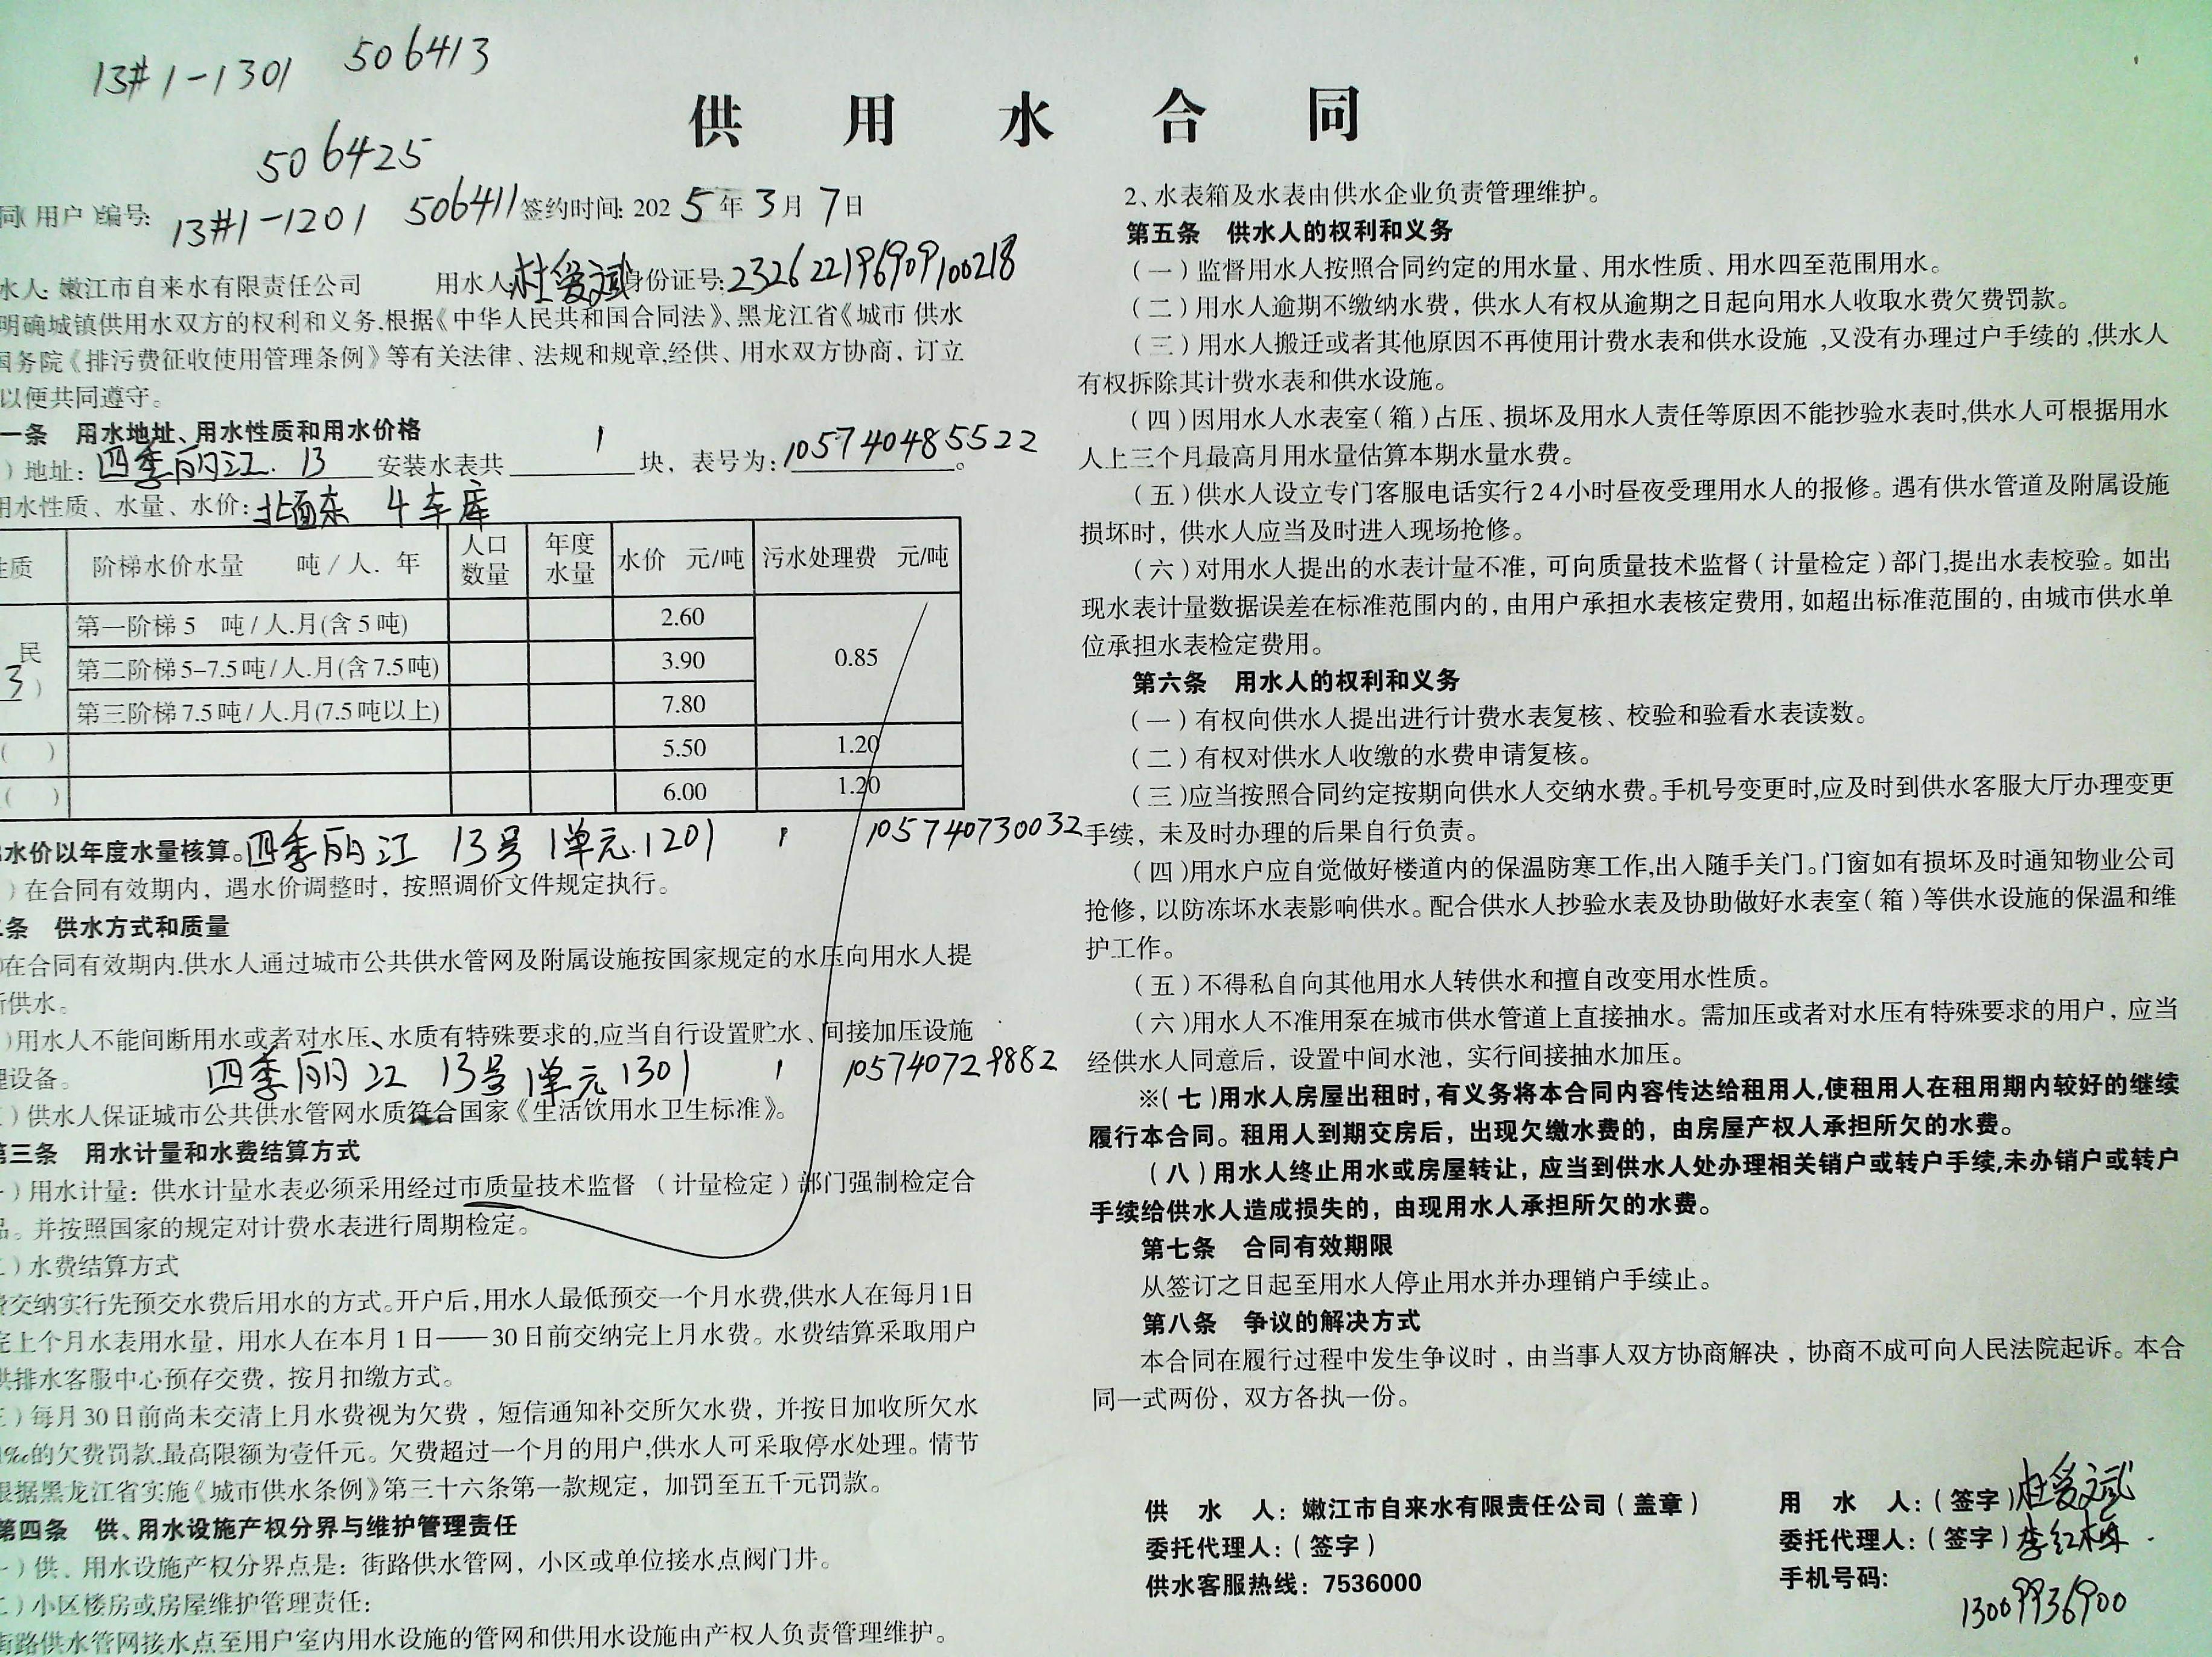 13#1-1301 506413
供用水合同
506425
同(用户)编号: 13#1-1201 506411 签约时间: 2025年3月7日
水人: 嫩江市自来水有限责任公司 用水人 杜爱斌 身份证号: 232622196909100218
明确城镇供用水双方的权利和义务.根据《中华人民共和国合同法》、黑龙江省《城市 供水
国务院《排污费征收使用管理条例》等有关法律、法规和规章,经供、用水双方协商，订立
以便共同遵守。
一条 用水地址、用水性质和用水价格
）地址: 四季丽江. 13 安装水表共 1 块，表号为: 105740485522。
用水性质、水量、水价: 北面东 4车库
性质 阶梯水价水量 吨/人.年 人口数量 年度水量 水价 元/吨 污水处理费 元/吨
民 3） 第一阶梯 5 吨/人.月(含5吨) 2.60 0.85
第二阶梯 5-7.5吨/人.月(含7.5吨) 3.90
第三阶梯 7.5吨/人.月(7.5吨以上) 7.80
( ) 5.50 1.20
( ) 6.00 1.20
水价以年度水量核算。四季丽江 13号1单元.1201 1 105740730032
）在合同有效期内，遇水价调整时，按照调价文件规定执行。
条 供水方式和质量
)在合同有效期内.供水人通过城市公共供水管网及附属设施按国家规定的水压向用水人提
供水。
)用水人不能间断用水或者对水压、水质有特殊要求的,应当自行设置贮水、间接加压设施
设备。 四季丽江 13号1单元1301 1 105740729882
）供水人保证城市公共供水管网水质符合国家《生活饮用水卫生标准》。
第三条 用水计量和水费结算方式
）用水计量：供水计量水表必须采用经过市质量技术监督（计量检定）部门强制检定合
品。并按照国家的规定对计费水表进行周期检定。
）水费结算方式
费交纳实行先预交水费后用水的方式。开户后,用水人最低预交一个月水费,供水人在每月1日
完上个月水表用水量，用水人在本月1日——30日前交纳完上月水费。水费结算采取用户
供排水客服中心预存交费，按月扣缴方式。
）每月30日前尚未交清上月水费视为欠费，短信通知补交所欠水费，并按日加收所欠水
‰的欠费罚款,最高限额为壹仟元。欠费超过一个月的用户,供水人可采取停水处理。情节
根据黑龙江省实施《城市供水条例》第三十六条第一款规定，加罚至五千元罚款。
第四条 供、用水设施产权分界与维护管理责任
）供、用水设施产权分界点是：街路供水管网，小区或单位接水点阀门井。
）小区楼房或房屋维护管理责任：
街路供水管网接水点至用户室内用水设施的管网和供用水设施由产权人负责管理维护。
2、水表箱及水表由供水企业负责管理维护。
第五条 供水人的权利和义务
（一）监督用水人按照合同约定的用水量、用水性质、用水四至范围用水。
（二）用水人逾期不缴纳水费，供水人有权从逾期之日起向用水人收取水费欠费罚款。
（三）用水人搬迁或者其他原因不再使用计费水表和供水设施,又没有办理过户手续的,供水人
有权拆除其计费水表和供水设施。
（四）因用水人水表室（箱）占压、损坏及用水人责任等原因不能抄验水表时,供水人可根据用水
人上三个月最高月用水量估算本期水量水费。
（五）供水人设立专门客服电话实行24小时昼夜受理用水人的报修。遇有供水管道及附属设施
损坏时，供水人应当及时进入现场抢修。
（六）对用水人提出的水表计量不准，可向质量技术监督（计量检定）部门,提出水表校验。如出
现水表计量数据误差在标准范围内的，由用户承担水表核定费用，如超出标准范围的，由城市供水单
位承担水表检定费用。
第六条 用水人的权利和义务
（一）有权向供水人提出进行计费水表复核、校验和验看水表读数。
（二）有权对供水人收缴的水费申请复核。
（三）应当按照合同约定按期向供水人交纳水费。手机号变更时,应及时到供水客服大厅办理变更
手续，未及时办理的后果自行负责。
（四）用水户应自觉做好楼道内的保温防寒工作,出入随手关门。门窗如有损坏及时通知物业公司
抢修，以防冻坏水表影响供水。配合供水人抄验水表及协助做好水表室（箱）等供水设施的保温和维
护工作。
（五）不得私自向其他用水人转供水和擅自改变用水性质。
（六）用水人不准用泵在城市供水管道上直接抽水。需加压或者对水压有特殊要求的用户，应当
经供水人同意后，设置中间水池，实行间接抽水加压。
※（七）用水人房屋出租时，有义务将本合同内容传达给租用人,使租用人在租用期内较好的继续
履行本合同。租用人到期交房后，出现欠缴水费的，由房屋产权人承担所欠的水费。
（八）用水人终止用水或房屋转让，应当到供水人处办理相关销户或转户手续,未办销户或转户
手续给供水人造成损失的，由现用水人承担所欠的水费。
第七条 合同有效期限
从签订之日起至用水人停止用水并办理销户手续止。
第八条 争议的解决方式
本合同在履行过程中发生争议时，由当事人双方协商解决，协商不成可向人民法院起诉。本合
同一式两份，双方各执一份。
供 水 人：嫩江市自来水有限责任公司（盖章）
委托代理人：（签字）
供水客服热线：7536000
用 水 人：（签字）杜爱斌
委托代理人：（签字）李红梅.
手机号码: 13009936900